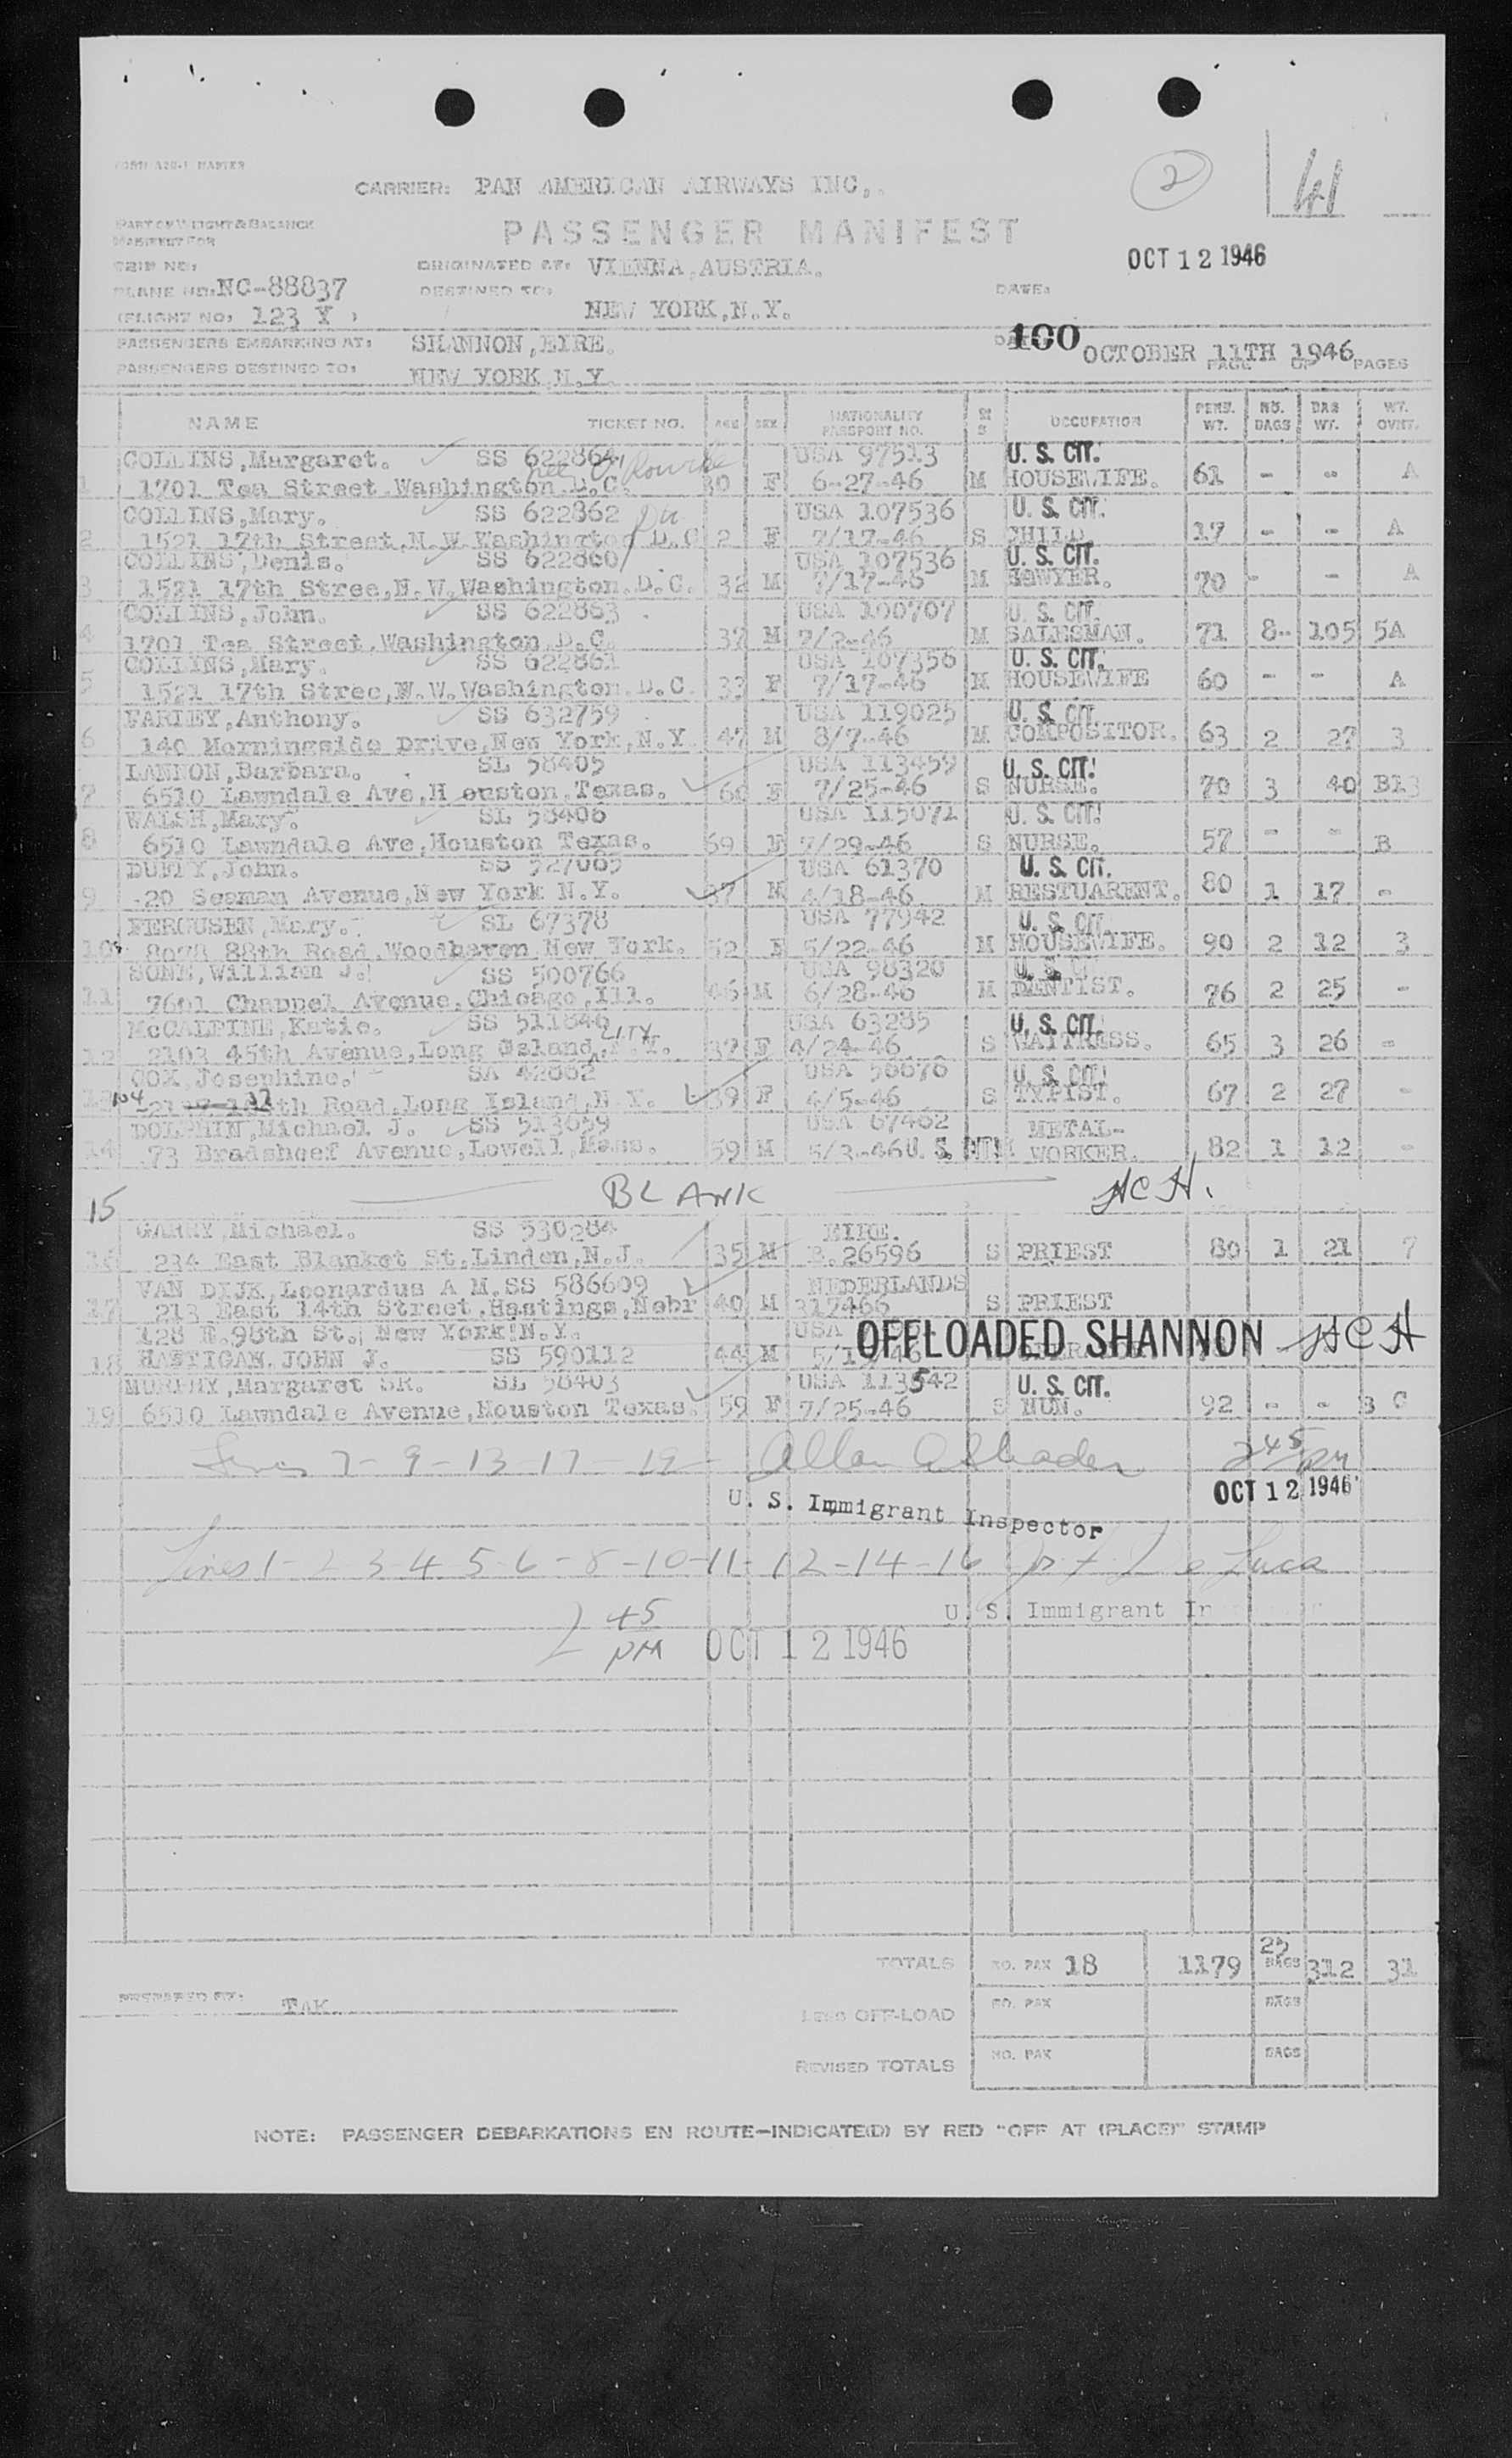 FORM A20-1 MASTER
CARRIER: PAN AMERICAN AIRWAYS INC,.
2
41
PART OF WEIGHT & BALANCE
MANIFEST FOR
PASSENGER MANIFEST
TRIP NO:
ORIGINATED AT: VIENNA, AUSTRIA.
OCT 12 1946
PLANE NO: NC-88837
DESTINED TO:
NEW YORK, N.Y.
DATE:
(FLIGHT NO: 123 Y )
PASSENGERS EMBARKING AT: SHANNON, EIRE.
100
OCTOBER 11TH 1946
PASSENGERS DESTINED TO: NEW YORK N.Y.
PAGE OF PAGES
NAME TICKET NO. AGE SEX NATIONALITY PASSPORT NO. M S OCCUPATION PERS. WT. NO. BAGS BAG WT. WT. OVHT.
COLLINS, Margaret. SS 622864 nee O'Rourke USA 97513 U. S. CIT.
1 1701 Tea Street. Washington. D.C. 30 F 6-27-46 M HOUSEWIFE. 61 - - A
COLLINS, Mary. SS 622862 USA 107536 U. S. CIT.
2 1521 17th Street, N.W. Washington D.C 2 F 7/17-46 S CHILD 17 - - A
COLLINS, Denis. SS 622860 USA 107536 U. S. CIT.
3 1521 17th Stree, N.W. Washington. D.C. 32 M 7/17-46 M 70 - - A
COLLINS, John. SS 622863 USA 100707 U. S. CIT.
4 1701 Tea Street. Washington D.C. 37 M 7/2-46 M SALESMAN. 71 8- 105 5A
COLLINS, Mary. SS 622861 USA 107356 U. S. CIT.
5 1521 17th Stree, N.W. Washington. D.C. 33 F 7/17-46 M HOUSEWIFE 60 - - A
FARLEY, Anthony. SS 632759 USA 119025 U. S. CIT
6 140 Morningside Drive, New York, N.Y 47 M 8/7-46 M COMPOSITOR. 63 2 27 3
LANNON, Barbara. SL 58405 USA 113459 U. S. CIT.
7 6510 Lawndale Ave, H ouston. Texas. 60 F 7/25-46 S NURSE. 70 3 40 B13
WALSH, Mary. SL 58406 USA 115071 U. S. CIT.
8 6510 Lawndale Ave, Houston Texas. 59 F 7/29-46 S NURSE. 57 - - B
John. SS 527065 USA 61370 U. S. CIT.
9 -20 Seaman Avenue, New York N.Y. 37 M 4/18-46 M RESTUARENT. 80 1 17 -
FERGUSEN, Mary. SL 67378 USA 77942 U. S. CIT
10 88th Road. Woodhaven New York. 52 F 5/22-46 M HOUSEWIFE. 90 2 12 3
William J. SS 500766 USA 98320
11 7601 Chappel Avenue, Chicago, Ill. 46 M 6/28-46 M DENTIST. 76 2 25 -
McCALPINE, Katie. SS 511640 CITY USA 63285 U. S. CIT.
12 2103 45th Avenue, Long Island, N.Y. 37 F 4/24-46 S WAITRESS. 65 3 26 -
COX, Josephine. SA 42862 USA 56676 U. S. CIT.
13 104 th Road, Long Island, N.Y. 39 F 4/5-46 S TYPIST. 67 2 27 -
DOLPHIN, Michael J. SS 513659 USA 67462 METAL-
14 73 Avenue, Lowell, Mass. 59 M 5/3-46 U. S. WORKER. 82 1 12 -
15 BLANK HCH.
GARRY, Michael. SS 530284 EIRE.
16 234 East Blanket St. Linden, N.J. 35 M E.26596 S PRIEST 80 1 21 7
VAN DIJK, Leonardus A M. SS 586609 NEDERLANDS
17 213 East 14th Street, Hastings, Nebr 40 M 317466 S PRIEST
128 E. 98th St. New York N.Y. USA OFFLOADED SHANNON HCH
18 HASTIGAN, JOHN J. SS 590112 44 M
MURPHY, Margaret SR. SL 58403 USA 113542 U. S. CIT.
19 6510 Lawndale Avenue, Houston Texas. 59 F 7/25-46 S NUN. 92 - - B C
Lines 7-9-13-17 19 2 45 PM
U. S. Immigrant Inspector OCT 12 1946
Lines 1-2-3-4-5-6-8-10-11-12-14-16
U. S. Immigrant In
2 45 PM OCT 12 1946
TOTALS NO. PAX 18 1179 25 BAGS 312 31
PREPARED BY: TAK.
LESS OFF-LOAD NO. PAX BAGS
REVISED TOTALS NO. PAX BAGS
NOTE: PASSENGER DEBARKATIONS EN ROUTE-INDICATE(D) BY RED "OFF AT (PLACE)" STAMP